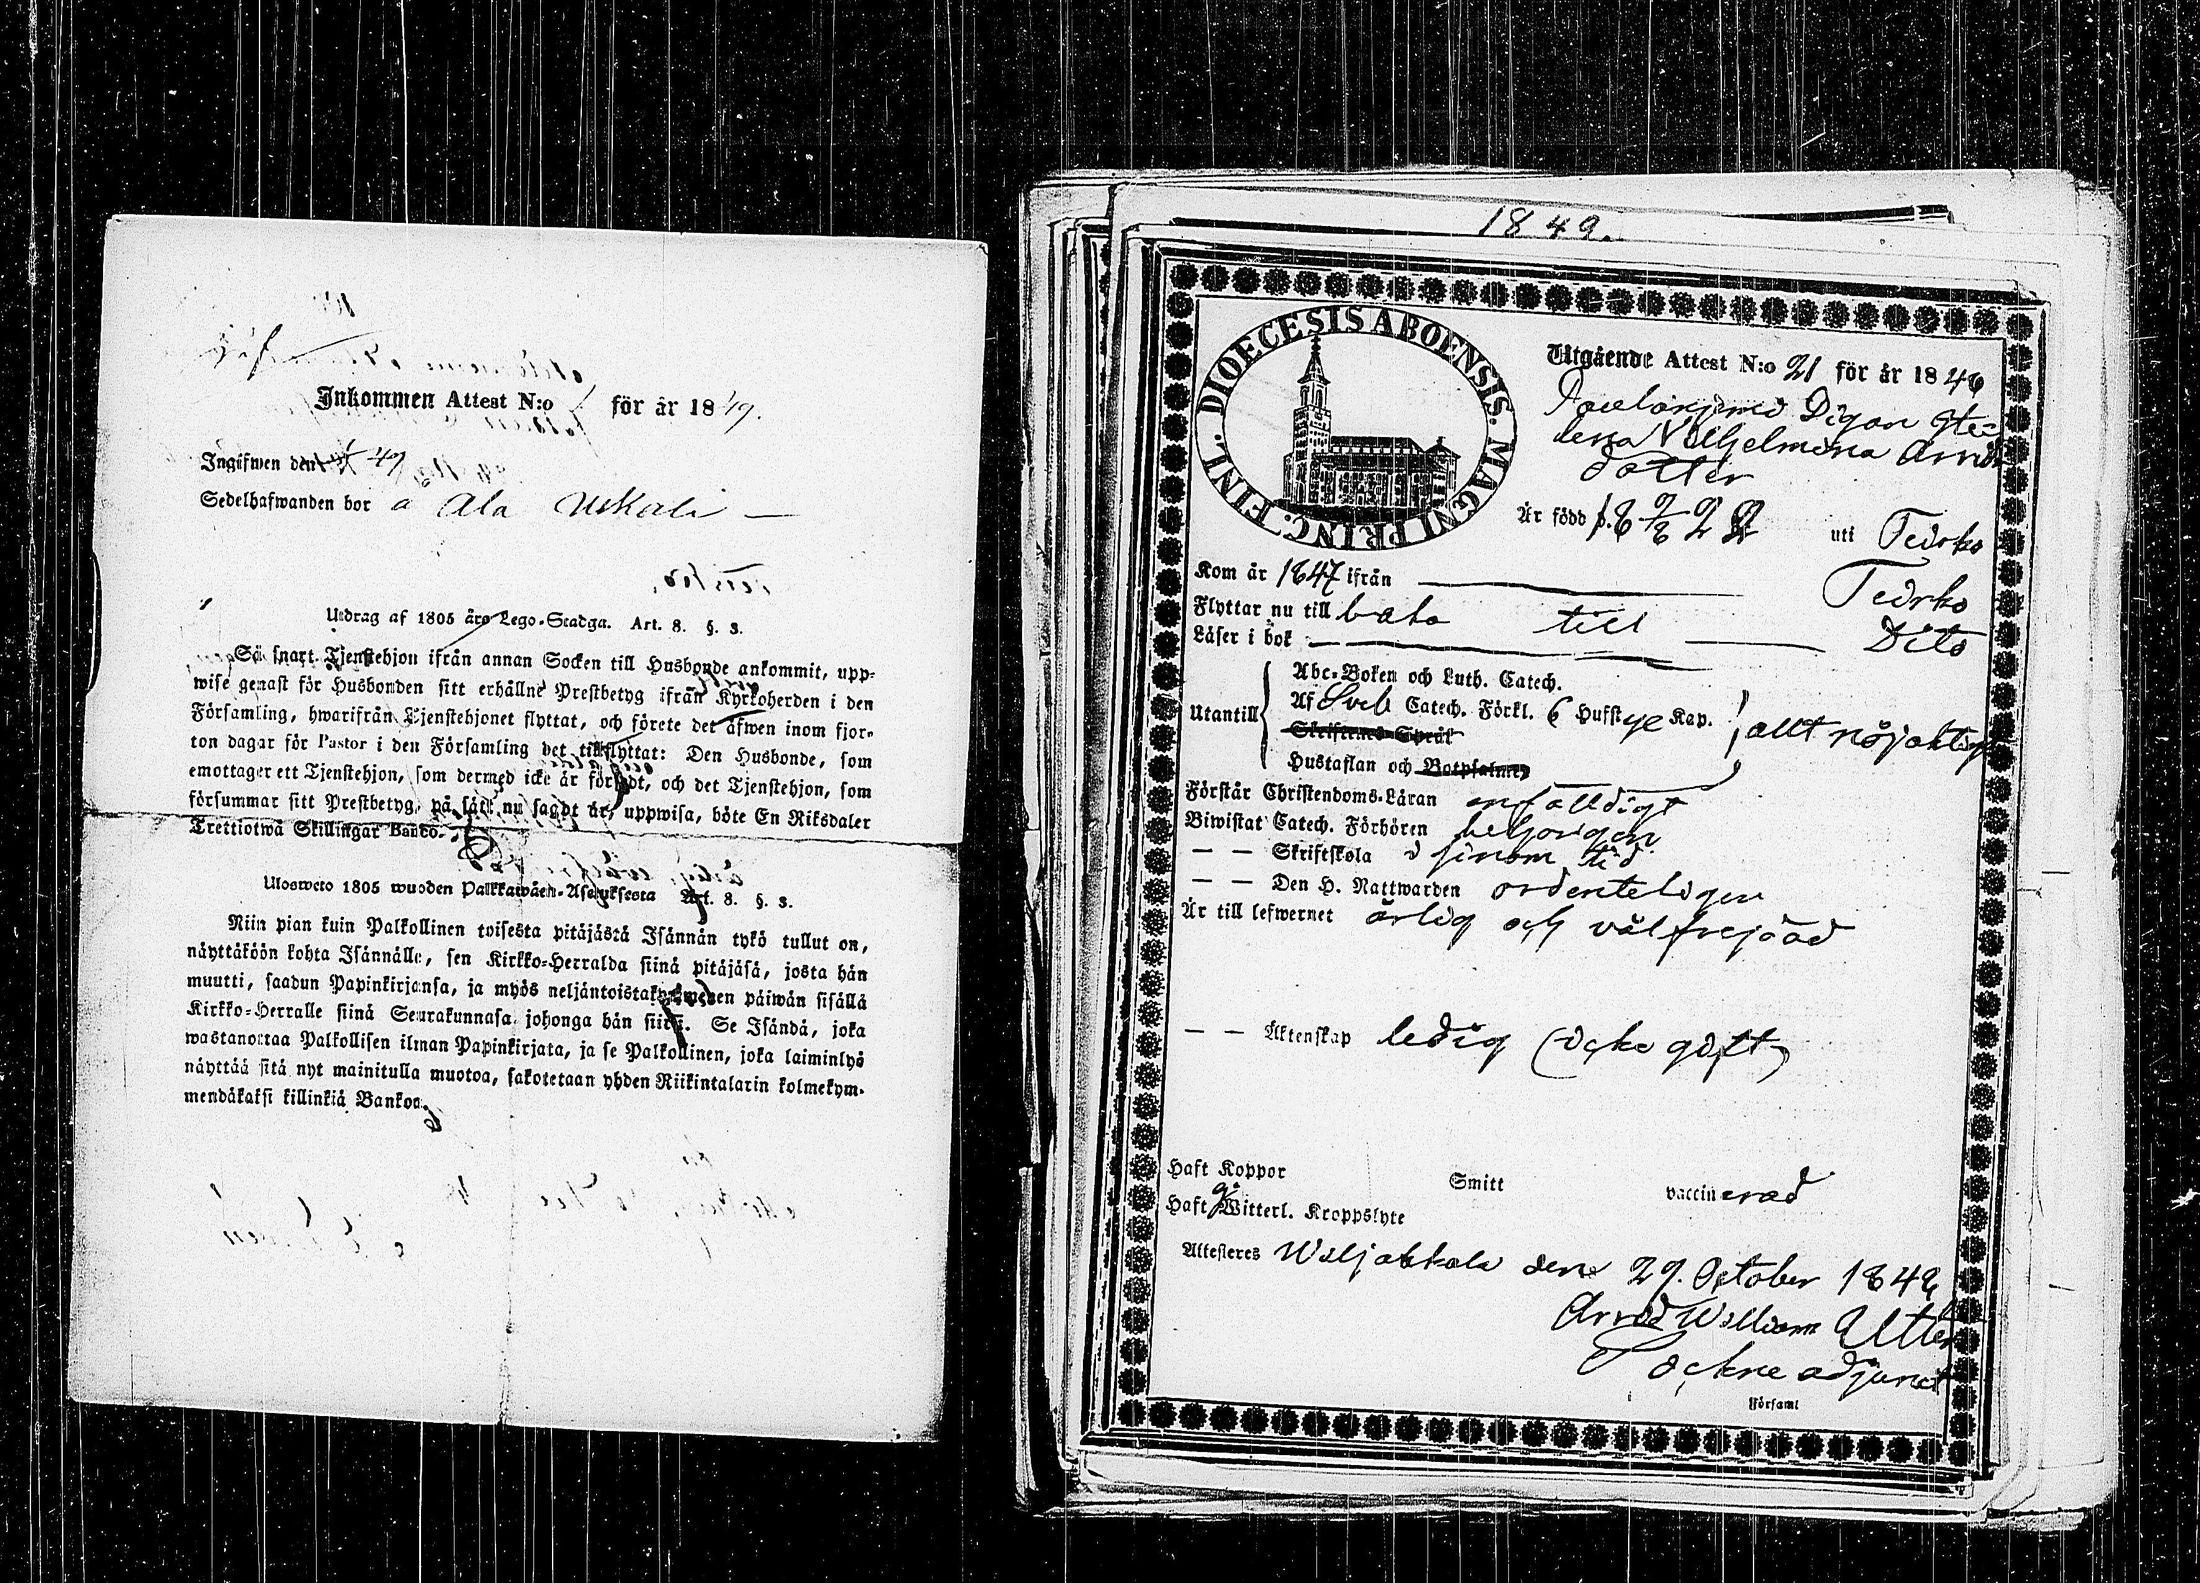 Inkommen Attest N:o för år 1849.
Ingifwen den 49
Sedelhafwanden bor å Ala Uskali
Utdrag af 1805 års Lego-Stadga. Art. 8. §. 3.
Så snart Tjenstehjon ifrån annan Socken till Husbonde ankommit, upp-
wise genast för Husbonden sitt erhållne Prestbetyg ifrån Kyrkoherden i den
Församling, hwarifrån Tjenstehjonet flyttat, och förete det äfwen inom fjor-
ton dagar för Pastor i den Församling det tillflyttat: Den Husbonde, som
emottager ett Tjenstehjon, som dermed icke är försedt, och det Tjenstehjon, som
försummar sitt Prestbetyg, på sätt nu sagdt är, uppwisa, böte En Riksdaler
Trettiotwå Skillingar Banko.
Ulosweto 1805 wuoden Palkkawäen-Asetuksesta Art. 8. §. 3.
Niin pian kuin Palkollinen toisesta pitäjästä Isännän tykö tullut on,
näyttäköön kohta Isännälle, sen Kirkko-Herralda siinä pitäjäsä, josta hän
muutti, saadun Papinkirjansa, ja myös neljäntoistakymmenen päiwän sisällä
Kirkko-Herralle siinä Seurakunnasa johonga hän siirsi. Se Isändä, joka
wastanottaa Palkollisen ilman Papinkirjata, ja se Palkollinen, joka laiminlyö
näyttää sitä nyt mainitulla muotoa, sakotetaan yhden Riikintalarin kolmekym-
mendäkaksi killinkiä Bankoa.
1849.
DIOECESIS ABOENSIS. MAGNI PRINC. FINL.
Utgående Attest N:o 21 för år 1848
Pigan
Vilhelmina
dotter
Är född uti Teisko
Kom år 1847 ifrån Teisko
Flyttar nu till baka till Dito
Läser i bok
Abc-Boken och Luth. Catech.
Af Sveb Catech. Förkl. 6 Hufstye Kap.
Utantill allt nöjaktigt
Skriftenes Språk
Hustaflan och Botpsalmer
Förstår Christendoms-Läran enfalldigt
Biwistat Catech. Förhören behörigen
— — Skriftskola i sinom tid
— — Den H. Nattwarden ordenteligen
Är till lefwernet ärlig och välfrejdad
— — Äktenskap ledig (icke gift)
Haft Koppor Smitt vaccinerad
Haft Witterl. Kroppslyte
Attesteras Wiljakkala den 29. October 1848
Arvid William
adjunct
Församl